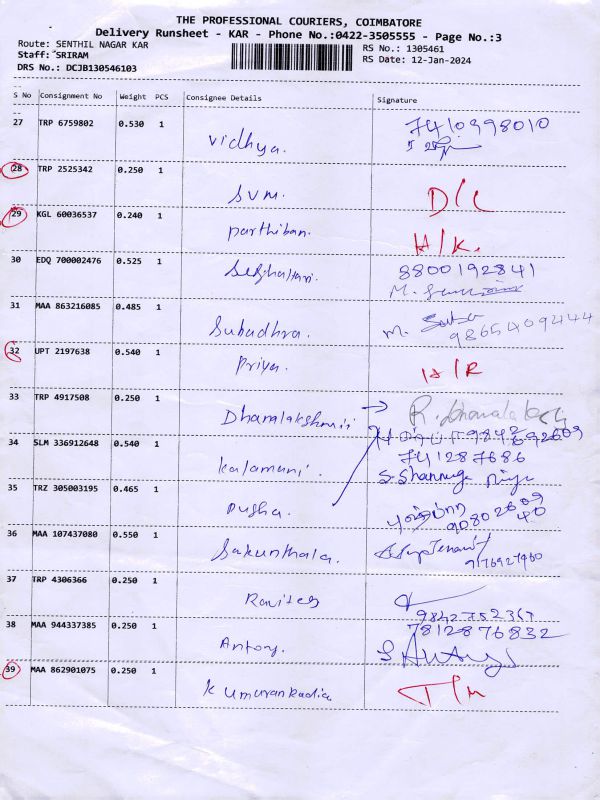 THE PROFESSIONAL COURIERS, COIMBATORE
Delivery Runsheet - KAR - Phone No.:0422-3505555 - Page No.:3
Route: SENTHIL NAGAR KAR RS No.: 1305461
Staff: SRIRAM RS Date: 12-Jan-2024
DRS No.: DCJB130546103
S No Consignment No Weight PCS Consignee Details Signature
27 TRP 6759802 0.530 1 Vidhya. 7410998010
28 TRP 2525342 0.250 1 SVM. D/C
29 KGL 60036537 0.240 1 Parthiban. H/K.
30 EDQ 700002476 0.525 1 8800192841
31 MAA 863216085 0.485 1 Subadhra. M. 9865409444
32 UPT 2197638 0.540 1 Priya. H/R
33 TRP 4917508 0.250 1 Dhanalakshmi R. Dhanalakshmi
34 SLM 336912648 0.540 1 kalamani. 741287686
35 TRZ 305003195 0.465 1 Pusha.
36 MAA 107437080 0.550 1 Sakunthala. 9176927960
37 TRP 4306366 0.250 1 9842752367
38 MAA 944337385 0.250 1 Antony. 7812876832
39 MAA 862901075 0.250 1